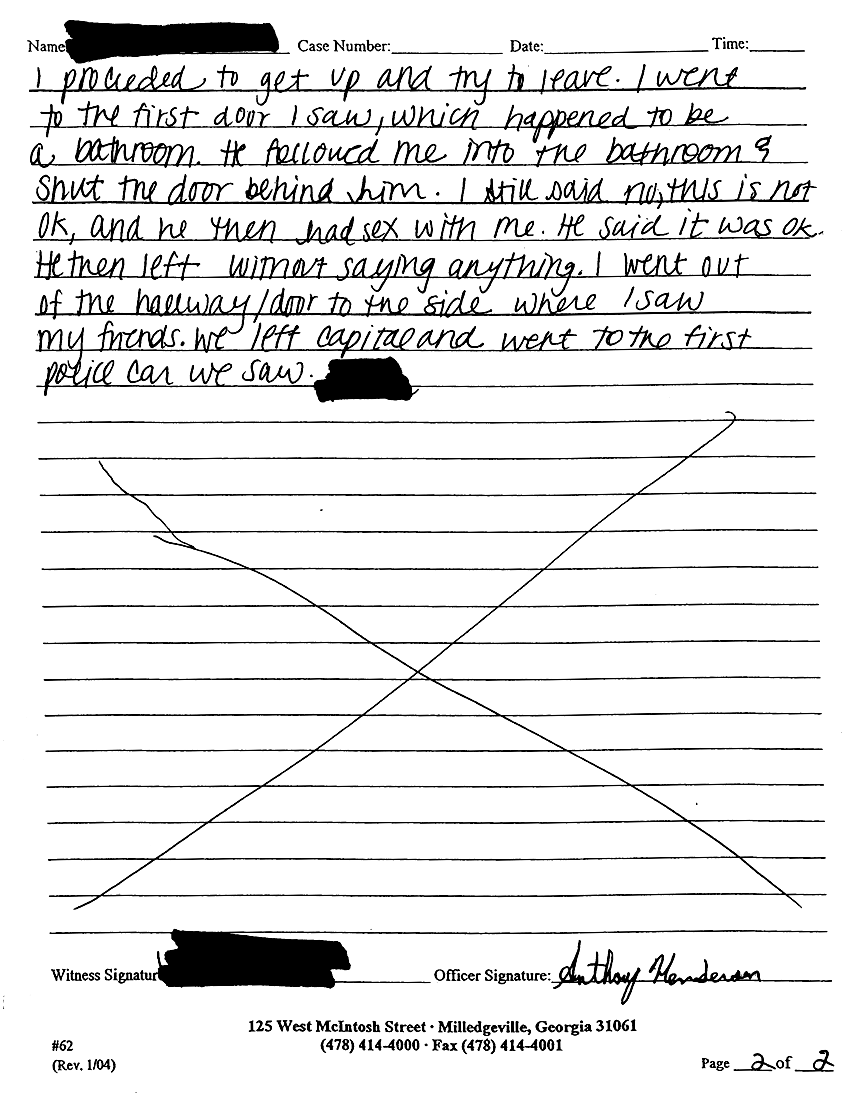 Name Case Number: Date: Time:
I proceeded to get up and try to leave. I went
to the first door I saw, which happened to be
a bathroom. He followed me into the bathroom &
shut the door behind him. I still said no, this is not
ok, and he then had sex with me. He said it was ok.
He then left without saying anything. I went out
of the hallway/door to the side where I saw
my friends. We left capital and went to the first
police car we saw.
Witness Signatur Officer Signature: Anthony Henderson
125 West McIntosh Street · Milledgeville, Georgia 31061
#62 (478) 414-4000 · Fax (478) 414-4001
(Rev. 1/04) Page 2 of 2